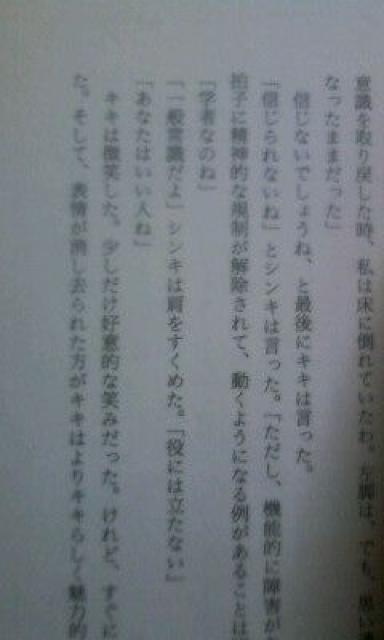 意識を取り戻した時、私は床に倒れていたわ。左脚は、でも、思い
なったままだった」
信じないでしょうね、と最後にキキは言った。
「信じられないね」とシンキは言った。「ただし、機能的に障害が
拍子に精神的な規制が解除されて、動くようになる例があることは
「学者なのね」
「一般常識だよ」シンキは肩をすくめた。「役には立たない」
「あなたはいい人ね」
キキは微笑した。少しだけ好意的な笑みだった。けれど、すぐに
た。そして、表情が消し去られた方がキキはよりキキらしく魅力的